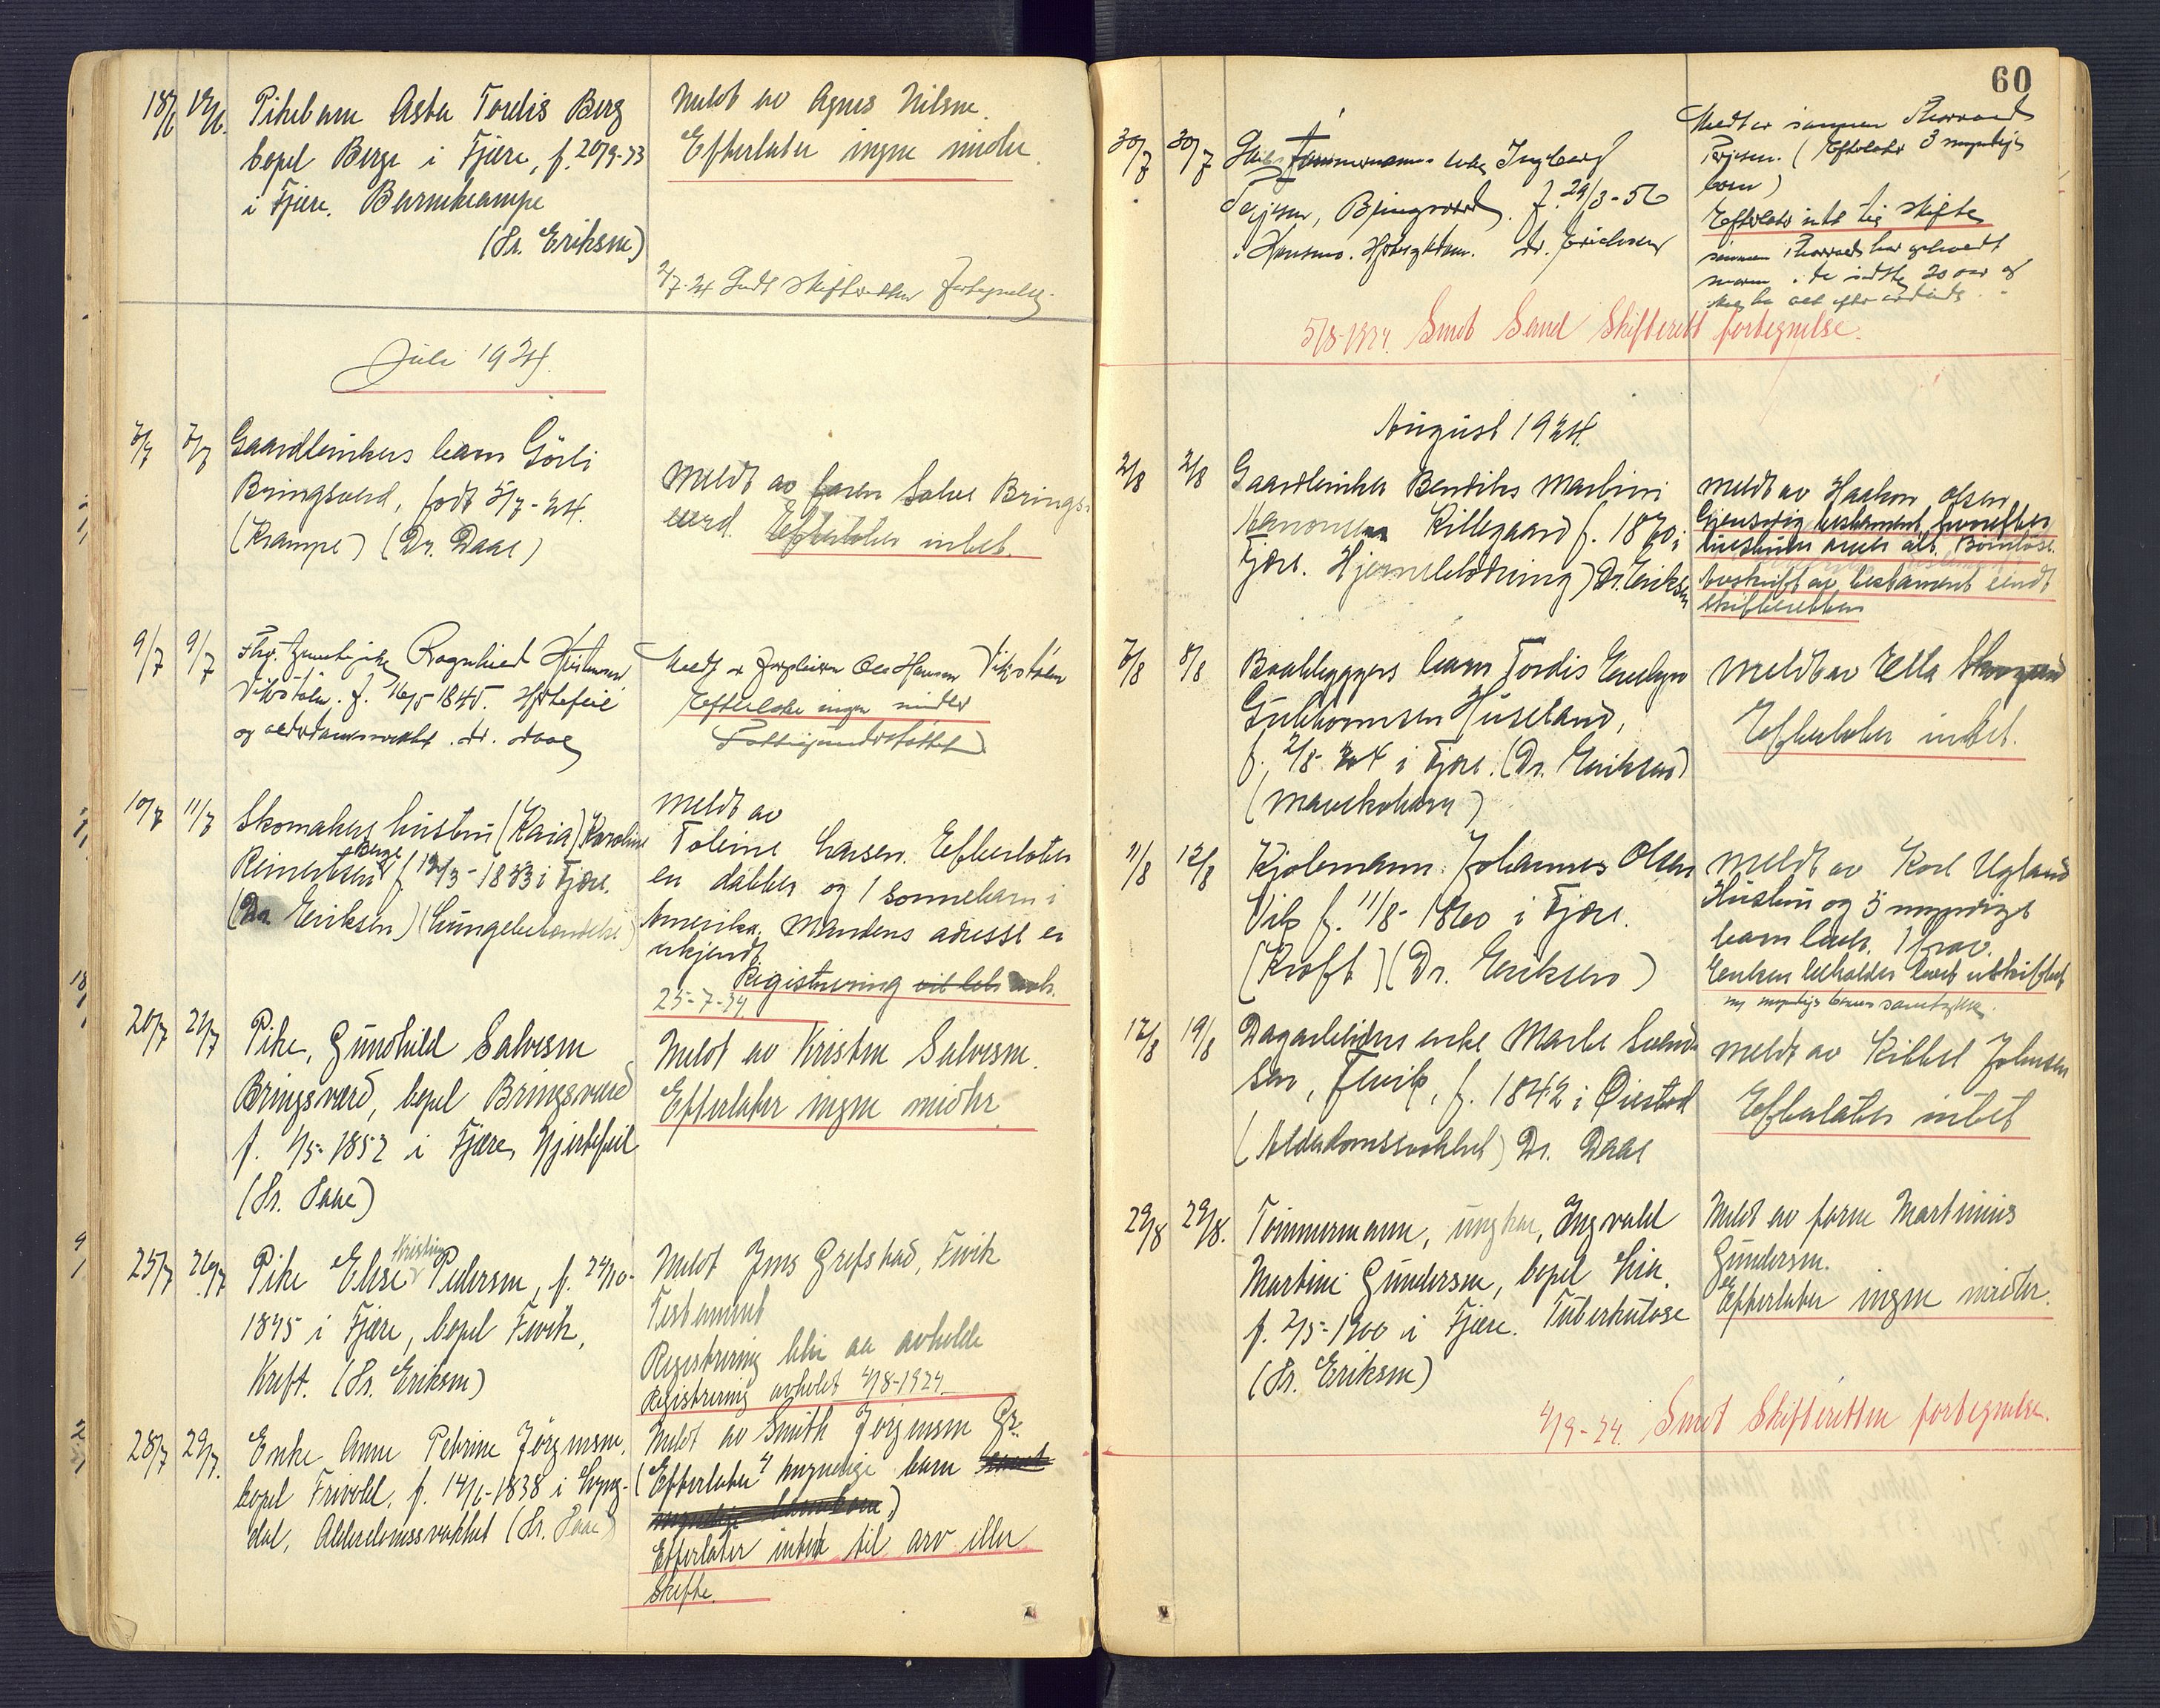 18/6 19/6. Pikebarn Asta Tordis Berg
bopel Berge i Fjære, f. 20/9-23
i Fjære. Barnekrampe
(Dr. Eriksen)
Meldt av Agnes Nilsen.
Efterlater ingen midler.
2/7-24 Sendt skifteretten fortegnelse.
Juli 1924.
7/7 7/7 Gaardbrukers barn Görli
Bringsverd, født 5/7-24.
(Krampe) (Dr. Daae)
Meldt av faren Salve Brings-
verd. Efterlater intet.
9/7 9/7 Ragnhild
Vikstølen. f. 16/5 1845. Hjertefeil
og alderdomssvakhet. Dr. Daae
Meldt av Ole Hansen Vikstølen
Efterlater ingen midler
Fattigunderstøttet
10/7 11/7 Skomakers hustru (Kaia) Karoline
Berge
Reinertsen f. 12/3-1833 i Fjære.
(Dr. Eriksen) (Lungebetændelse)
Meldt av
Toline Larsen. Efterlater
en datter og 1 sønnebarn i
Amerika. Mandens adresse er
ukjendt
Registrering vil bli avh.
25-7-24
20/7 21/7 Pike, Gunhild Salvesen
Bringsværd, bopel Bringsværd
f. 1/5-1852 i Fjære, Hjertefeil
(Dr. Daae)
Meldt av Kristen Salvesen.
Efterlater ingen midler
25/7 26/7 Pike Elise Kristine Pedersen, f. 24/10-
1845 i Fjære, bopel Fevik,
Kreft. (Dr. Eriksen)
Meldt Jens Grefstad, Fevik
Testament
Registrering blir aa avholde
Registrering avholdt 4/8-1924.
28/7 29/7. Enke Anne Petrine Jörgensen.
bopel Frivold, f. 14/6-1838 i Lyng-
dal, Alderdomssvakhet (Dr. Daae)
Meldt av Smith Jörgensen Gr.
(Efterlater 4 myndige barn
Efterlater intet til arv eller
Skifte.
60
30/7 30/7 Tømmermanns enke Ingeborg
Terjesen, Bringsverd. f. 29/3-56
Dr. Erichsen
Meldt av sønnen Thorvald
Terjesen. (Efterlater 3 myndige
barn)
Efterlater intet til skifte
sønnen Thorvald har
moren i de sidste 20 aar og
5/8-1924. Sendt Sand Skifterett fortegnelse.
August 1924.
2/8 2/8 Gaardbruker Bendiks Martin
Aanonsen Killegaard f. 1870 i
Fjære. Hjerneblödning) Dr. Eriksen
Meldt av Haakon Olsen
Gjensidig testament hvorefter
hustruen arver alt. Barnløse.
Avskrift av testament sendt
skifteretten
7/8 8/8 Baatbyggers barn Tordis Evelyn
Gulbrannsen Huseland,
f. 2/8-24 i Fjære. (Dr. Eriksen)
(Mavekatarr)
Meldt av Ella
Efterlater intet.
11/8 12/8 Kjolemann Johannes Olsen
Vik f. 11/8-1860 i Fjære.
(Kræft) (Dr. Eriksen)
Meldt av Karl Ugland
Hustru og 5 myndige
barn
Enken beholder boet uskiftet
m myndige barns samtykke.
17/8 19/8 Dagarbeiders enke Marte Svend-
sen, Fevik, f. 1842 i Øiestad
(Alderdomssvakhet) Dr. Daae
Meldt av Kittel Johnsen
Efterlater intet
29/8 29/8. Tömmermann, ungkar, Ingvald
Martin Gundersen, bopel Lia.
f. 2/5-1900 i Fjære. Tuberkulose
(Dr. Eriksen)
Meldt av faren Martinius
Gundersen.
Efterlater ingen midler.
4/9-24. Sendt Skifteretten fortegnelse.